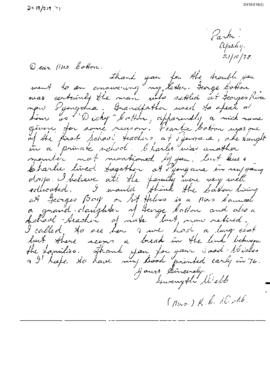 Parkes
Apsley.
21/10/72.
Dear Mrs Cotton.
Thank you for the trouble you
went to in answering my letter. George Cotton
was certainly the man who settled at Georges River
now Pyengana. Grandfather used to speak of
him as "Dicky" Cotton, apparently a nick name
given for some reason. Pearlie Cotton was one
of the first school teachers at Pyengana, she taught
in a private school. Charlie was another
member not mentioned by you, but he &
Charlie lived together at Pyengana in my young
days. I believe all the family were very well
educated. I would think the Cotton living
at Georges Bay or St Helens is a Mrs
a grand-daughter of George Cotton and also a
school teacher of note but now retired.
I called to see her & we had a long chat
but there seems a break in the link between
the families. Thank you for your good wishes
& I hope to have my book printed early in 73.
Yours Sincerely
Gwenyth Webb
(Mrs.) K. L. Webb.